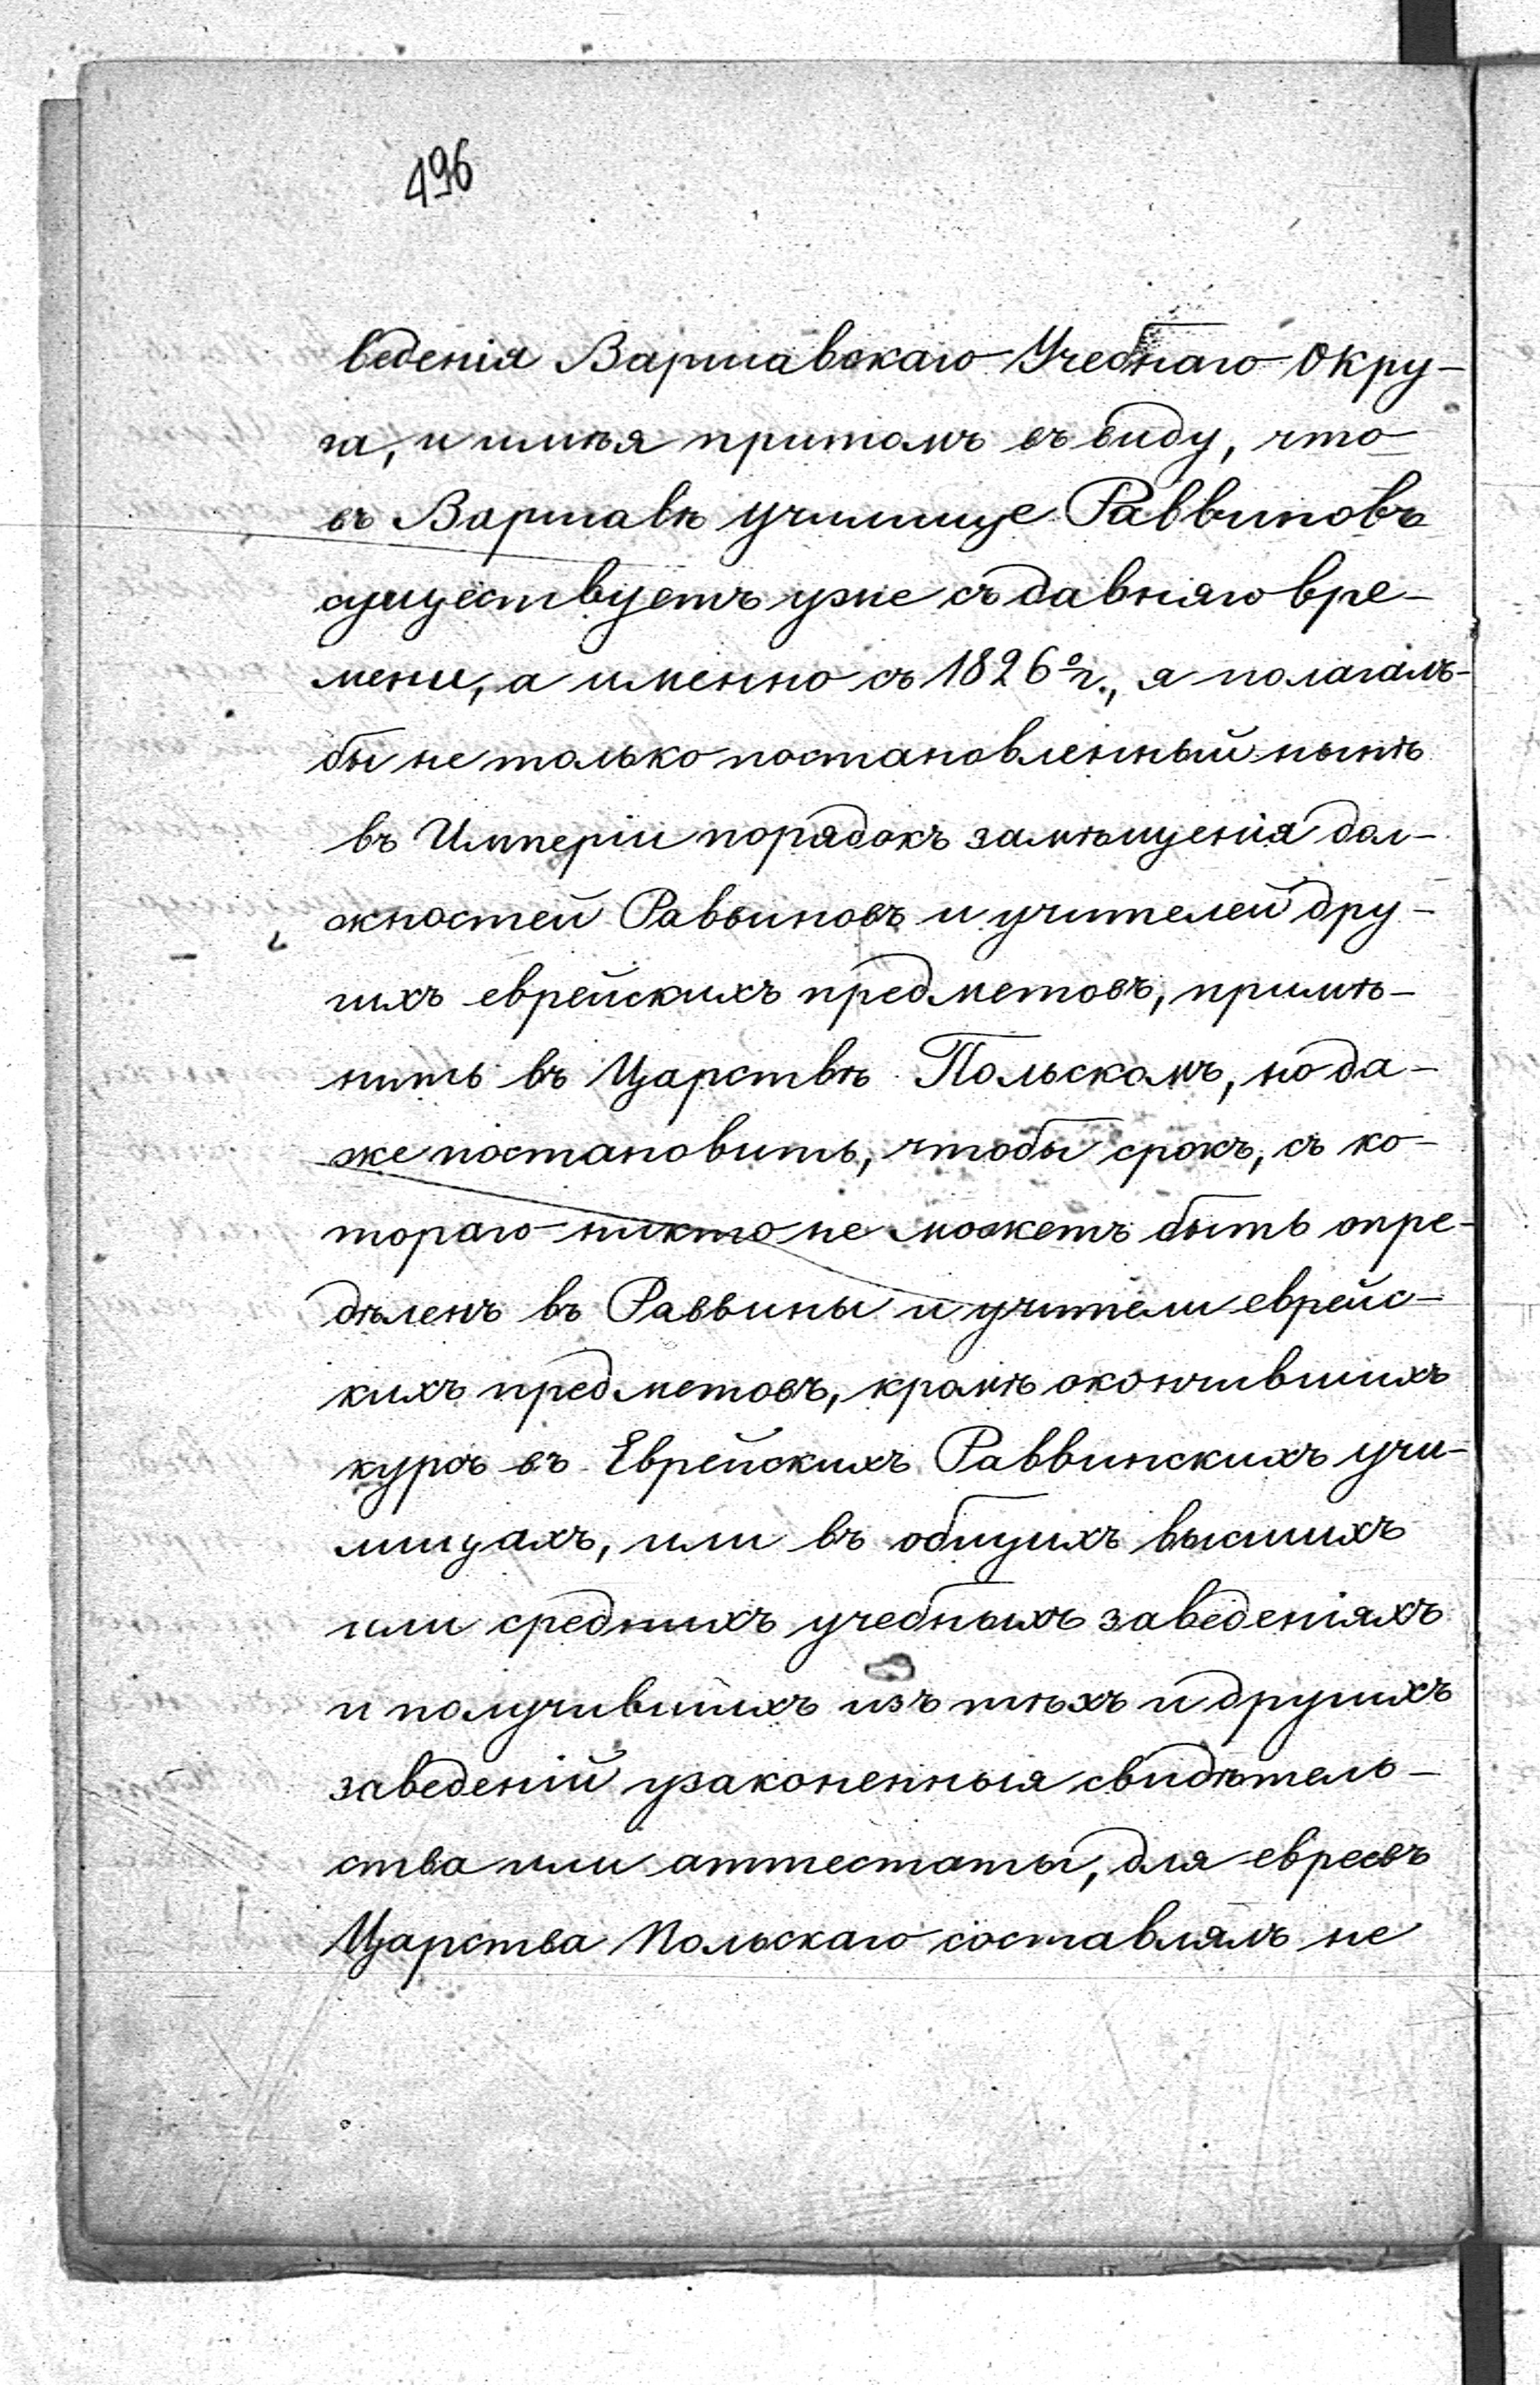 496
веденія Варшавскаго Учебнаго Окру-
га, и имѣя притомъ въ виду, что
въ Варшавѣ училище Раввиновъ
существуетъ уже съ давняго вре-
мени, а именно съ 1826 г., я полагалъ-
бы не только постановленный нынѣ
въ Имперіи порядокъ замѣщенія дол-
жностей Раввиновъ и учителей дру-
гихъ еврейскихъ предметовъ, примѣ-
нить въ Царствѣ Польскомъ, но да-
же постановить, чтобы срокъ, съ ко-
тораго никто не можетъ быть опре-
дѣленъ въ Раввины и учители еврейс-
кихъ предметовъ, кромѣ окончившихъ
курсъ въ Еврейскихъ Раввинскихъ учи-
лищахъ, или въ общихъ высшихъ
или среднихъ учебныхъ заведеніяхъ
и получившихъ изъ тѣхъ и другихъ
заведеній узаконенныя свидѣтель-
ства или аттестаты, для евреевъ
Царства Польскаго составлялъ не